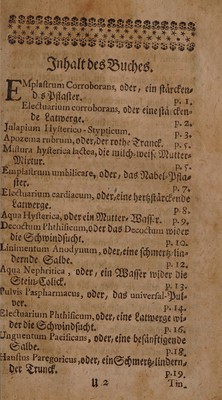 Inhalt des Buches.
EMplastrum Corroborans, oder, ein stärcken-
d's Pflaster. p. 1.
Electuarium corroborans, oder eine stärcken-
de Latwerge. p. 2.
Julapium Hysterico-Stypticum. p. 3.
Apozema rubrum, oder, der rothe Tranck. p. 5.
Mistura hysterica lactea, die milch-weisse Mutter-
Mixtur. p. 5.
Emplastrum umbilicare, oder, das Nabel-Pfla-
ster. p. 7.
Electuarium cardiacum, oder, eine hertzstärckende
Latwerge. p. 8.
Aqua Hysterica, oder ein Mutter-Wasser. p. 9.
Decoctum Phthisicum, oder das Decoctum wider
die Schwindsucht. p. 10.
Linimentum Anodynum, oder, eine schmertz-lin-
dernde Salbe. p. 12.
Aqua Nephritica, oder, ein Wasser wider die
Stein-Colick. p. 13.
Pulvis Panpharmacus, oder, das universal-Pul-
ver. p. 14.
Electuarium Phthisicum, oder, eine Latwerge wi-
der die Schwindsucht. p. 16.
Unguentum Pacificans, oder, eine besänftigende
Salbe. p. 18.
Haustus Paregoricus, oder, ein Schmertz-lindern-
der Trunck. p. 19.
U 2 Tin-